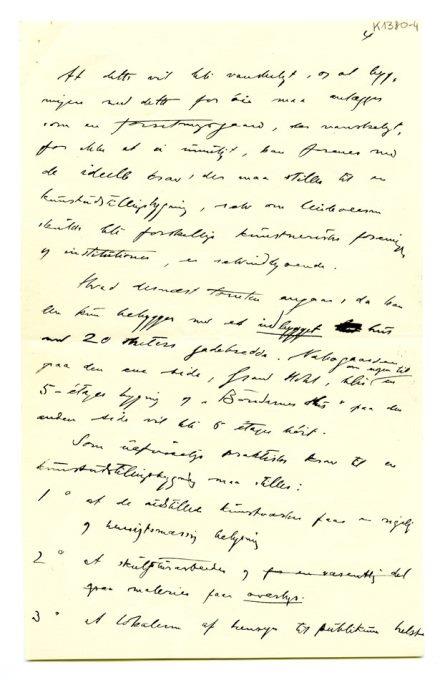 K1380-4
4
At dette vil bli vanskeligt, og at byg,
ningen med dette for øie maa anlægges
som en forretningsgaard, der vanskeligt,
for ikke at si umuligt, kan forenes med
de ideelle krav, der maa stilles til en
kunstudstillingsbygning, selv om leieboerne
skulde bli forskjellige kunstneriske foreninger
og institutioner, er selvindlysende.
Hvad dernæst tomten angaar, da kan
den kun bebygges med et indbygget hus
med 20 meters gadebredde. Nabogaarden
paa den ene side, Grand Hotel, blir en
5-etages bygning og "Bøndernes Hus" paa den
anden side vil bli 6 etager høit.
Som uafviselige praktiske krav til en
kunstudstillingsbygning maa stilles:
1° at de udstillede kunstverker faar
og hensigtsmæssig belysning
2° At skulpturarbeider og for en væsentlig del
ogsaa malerier faar overlys.
3° At lokalerne af hensyn til publikum helst